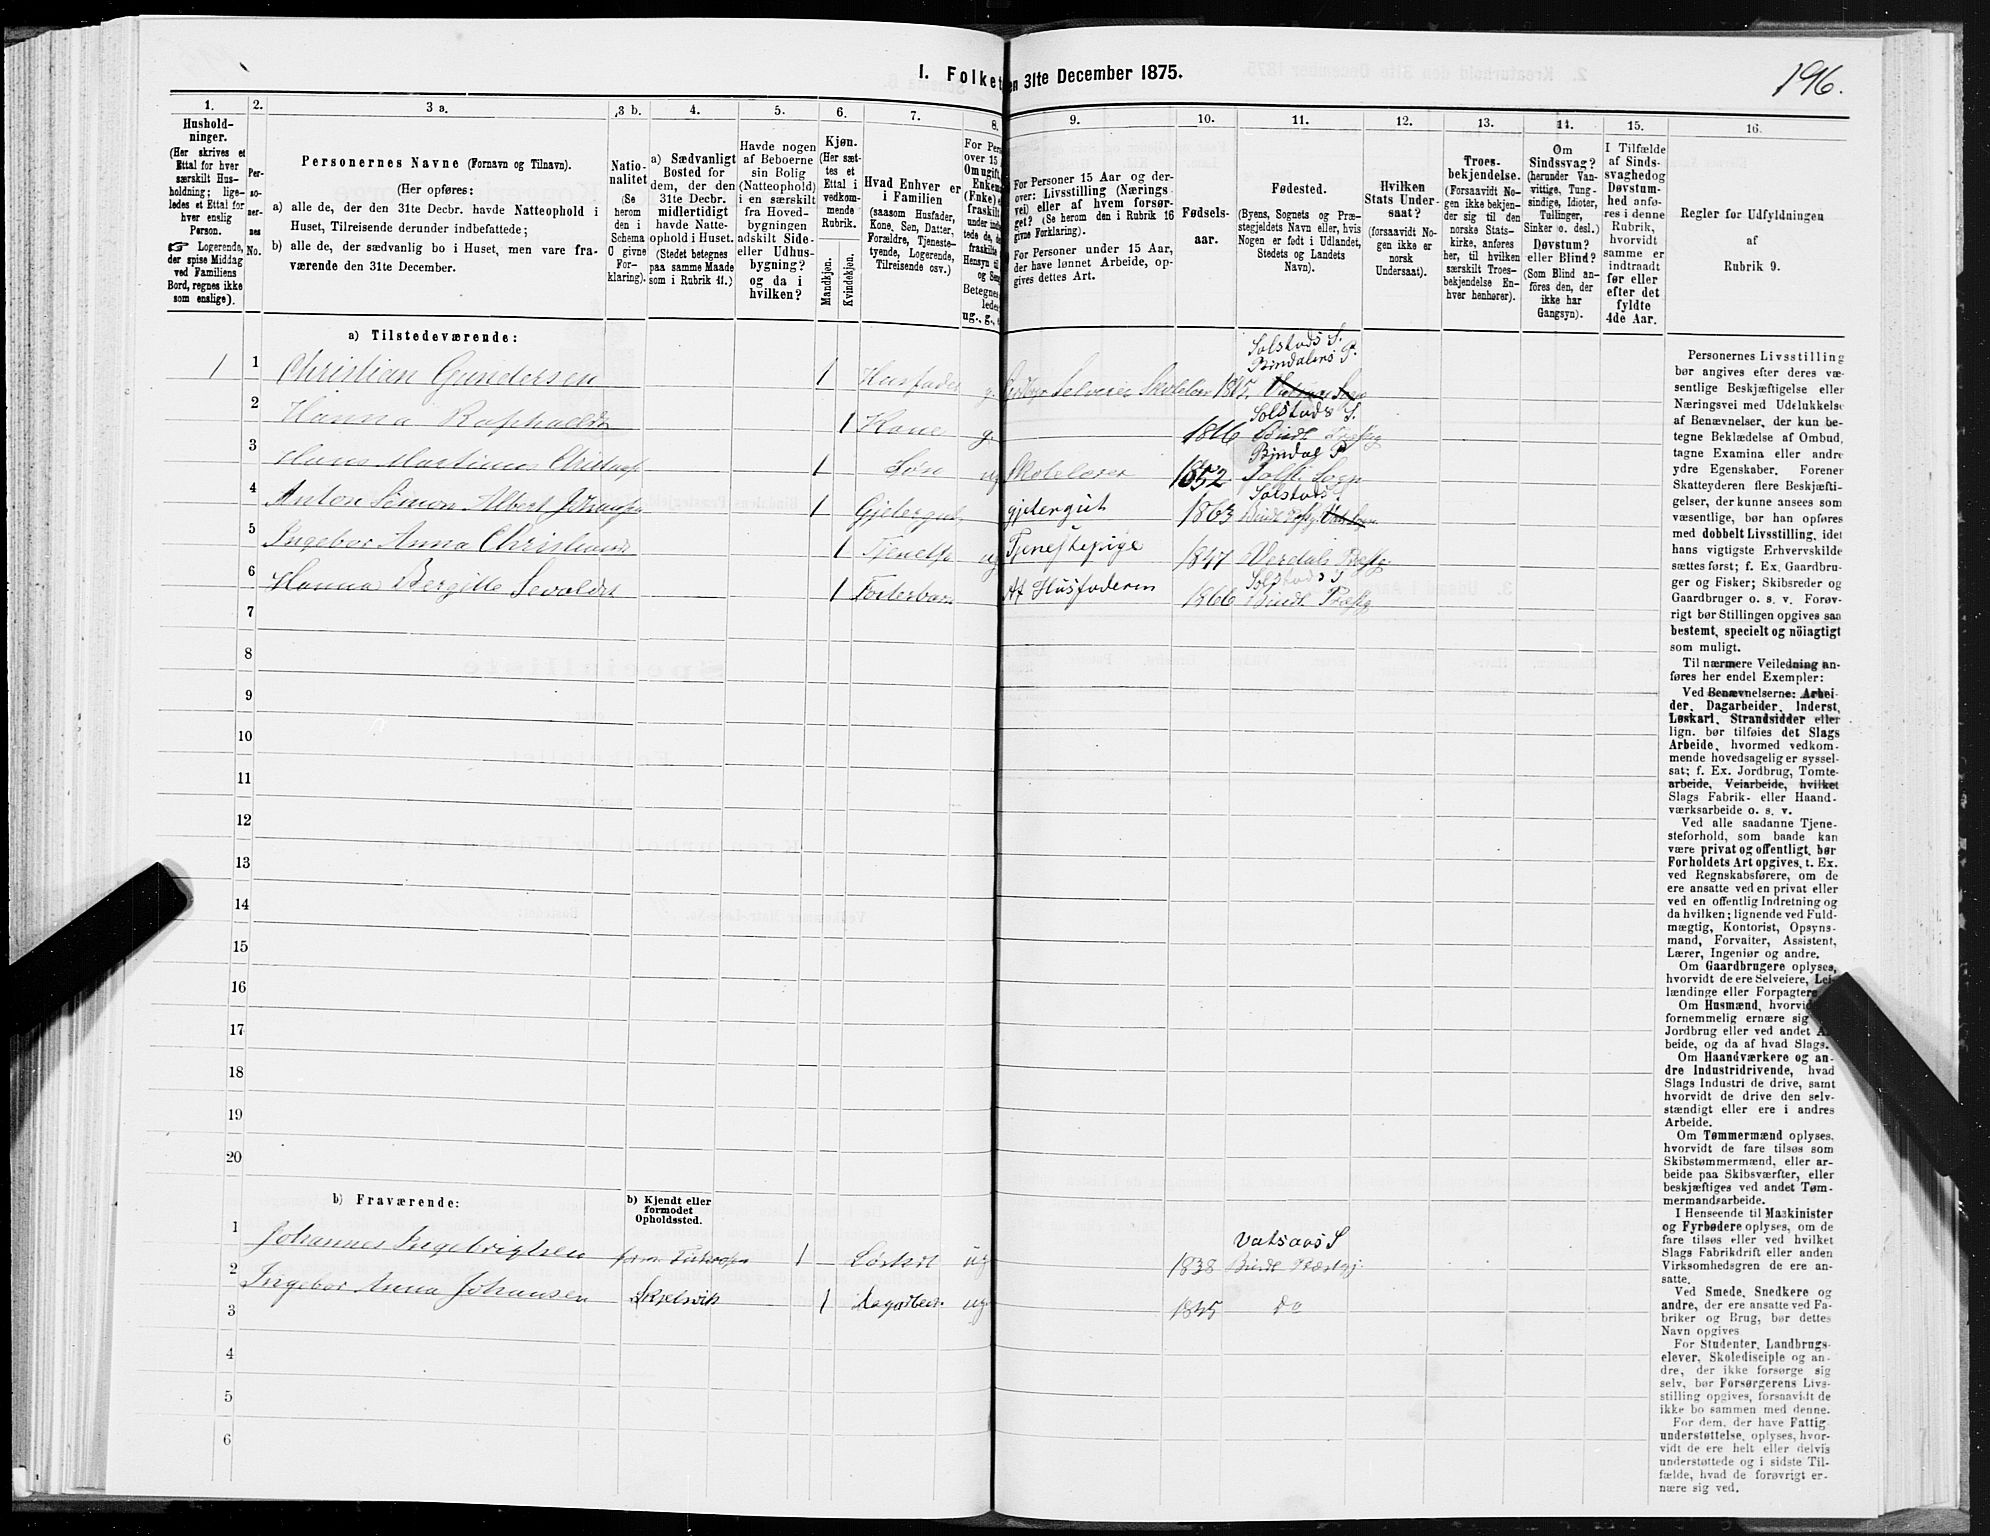 196.
I. Folket
en 31te December 1875.
1. 2. 3 a. 3 b. 4. 5. 6. 7. 8. 9. 10. 11. 12. 13. 14. 15. 16.
Hushold-
ninger.
(Her skrives et
Ettal for hver
særskilt Hus-
holdning; lige-
ledes et Ettal for
hver enslig
Person.
☞ Logerende,
der spise Middag
ved Familiens
Bord, regnes ikke
som enslige).
Per-
so-
ner-
nes
No.
Personernes Navne (Fornavn og Tilnavn).
(Her opføres:
a) alle de, der den 31te Decbr. havde Natteophold i
Huset, Tilreisende derunder indbefattede;
b) alle de, der sædvanlig bo i Huset, men vare fra-
værende den 31te December.
Natio-
nalitet
(Se
herom
den i
Schema
O givne
For-
klaring).
a) Sædvanligt
Bosted for
dem, der den
31te Decbr.
midlertidigt
havde Natte-
ophold i Huset.
(Stedet betegnes
paa samme Maade
som i Rubrik 11.)
Havde nogen
af Beboerne
sin Bolig
(Natteophold)
i en særskilt
fra Hoved-
bygningen
adskilt Side-
eller Udhus-
bygning?
og da i
hvilken?
Kjøn.
(Her sæt-
tes et
Ettal i
vedkom-
mende
Rubrik.
Mandkjøn.
Kvindekjøn.
Hvad Enhver er
i Familien
(saasom Husfader,
Kone, Søn, Datter,
Forældre, Tjeneste-
tyende, Logerende,
Tilreisende osv.)
For Pers
over 15 A
Om ugift,
Enkem
(Enke) e
fraskilt
under ind
tede de,
fraskilte
Hensyn til
og Sen
Betegnes
ledes
ug., g., e
For Personer 15 Aar og der-
over: Livsstilling (Nærings-
vei) eller af hvem forsør-
get? (Se herom den i Rubrik 16
givne Forklaring).
For Personer under 15 Aar,
der have lønnet Arbeide, op-
gives dettes Art.
Fødsels-
aar.
Fødested.
(Byens, Sognets og Præ-
stegjeldets Navn eller, hvis
Nogen er født i Udlandet,
Stedets og Landets
Navn).
Hvilken
Stats Under-
saat?
(forsaavidt No-
gen ikke er
norsk
Undersaat).
Troes-
bekjendelse.
(Forsaavidt No-
gen ikke bekjen-
der sig til den
norske Stats-
kirke, anføres
her, til hvilken
særskilt Troes-
bekjendelse En-
hver henhører).
Om
Sindssvag?
(herunder Van-
vittige, Tung-
sindige, Idioter,
Tullinger,
Sinker o. desl.)
Døvstum?
eller Blind?
(Som Blind an-
føres den, der
ikke har
Gangsyn).
I Tilfælde
af Sinds-
svaghed og
Døvstum-
hed anfø-
res i denne
Rubrik,
hvorvidt
samme er
indtraadt
før eller
efter det
fyldte
4de Aar.
Regler for Udfyldningen
af
Rubrik 9.
a) Tilstedeværende:
Solstads S.
Bindalens P.
1 1 Christian Gundersen 1 Husfader g. Selveier Skolelærer 1815
Solstads S.
2 Hanna 1 Kone g. 1816 Bindl Præstg
Bindal P
3 Hans Martinus 1 Søn ug Skolelærer 1852 Sogn
Solstads S
4 Anton Simon Albert 1 Gjetergut gjetergut 1863 Bindl
5 Ingebor Anna 1 ug Tjenestepige 1847 Verdals Præstg
Solstads S
6 Hanna Bergitte 1 Fosterbarn Af Husfaderen 1866 Bindl Præstg
7
8
9
10
11
12
13
14
15
16
17
18
19
20
b) Fraværende:
b) Kjendt eller
formodet
Opholdssted.
Vatsaas S
1 Johannes Ingebrigtsen 1 ug 1838 Bindl Præstgj
2 Ingebor Anna Johansen 1 ug 1845 do
3
4
5
6
Personernes Livsstilling
bør angives efter deres væ-
sentlige Beskjæftigelse eller
Næringsvei med Udelukkelse
af Benævnelser, der kun be-
tegne Beklædelse af Ombud,
tagne Examina eller andre
ydre Egenskaber. Forener
Skatteyderen flere Beskjæfti-
gelser, der kunne ansees som
væsentlige, bør han opføres
med dobbelt Livsstilling, idet
hans vigtigste Erhvervskilde
sættes først; f. Ex. Gaardbru-
ger og Fisker; Skibsreder og
Gaardbruger o. s. v. Forøv-
rigt bør Stillingen opgives saa
bestemt, specielt og nöiagtigt
som muligt.
Til nærmere Veiledning an-
føres her endel Exempler:
Ved Benævnelserne: Arbei-
der, Dagarbeider, Inderst,
Løskarl, Strandsidder eller
lign. bør tilføies det Slags
Arbeide, hvormed vedkom-
mende hovedsagelig er syssel-
sat; f. Ex. Jordbrug, Tomte-
arbeide, Veiarbeide, hvilket
Slags Fabrik- eller Haand-
værksarbeide o. s. v.
Ved alle saadanne Tjene-
steforhold, som baade kan
være privat og offentligt, bør
Forholdets Art opgives, t. Ex.
ved Regnskabsførere, om de
ere ansatte ved en privat eller
ved en offentlig Indretning og
da hvilken; lignende ved Fuld-
mægtig, Kontorist, Opsyns-
mand, Forvalter, Assistent,
Lærer, Ingeniør og andre.
Om Gaardbrugere oplyses,
hvorvidt de ere Selveiere, Lei-
lændinge eller Forpagtere
Om Husmænd, hvorvidt
fornemmelig ernære sig
Jordbrug eller ved andet Ar-
beide, og da af hvad Slags.
Om Haandværkere og an-
dre Industridrivende, hvad
Slags Industri de drive, samt
hvorvidt de drive den selv-
stændigt eller ere i andres
Arbeide.
Om Tømmermænd oplyses,
hvorvidt de fare tilsøs som
Skibstømmermænd, eller ar-
beide paa Skibsværfter, eller
beskjæftiges ved andet Tøm-
mermandsarbeide.
I Henseende til Maskinister
og Fyrbødere oplyses, om de
fare tilsøs eller ved hvilket
Slags Fabrikdrift eller anden
Virksomhedsgren de ere an-
satte.
Ved Smede, Snedkere og
andre, der ere ansatte ved Fa-
briker og Brug, bør dettes
Navn opgives
For Studenter, Landbrugs-
elever, Skoledisciple og an-
dre, der ikke forsørge sig
selv, bør Forsørgerens Livs-
stilling opgives, forsaavidt de
ikke bo sammen med denne.
For dem, der have Fattig-
understøttelse, oplyses, hvor-
vidt de ere helt eller delvis
understøttede og i sidste Til-
fælde, hvad de forøvrigt er-
nære sig ved.